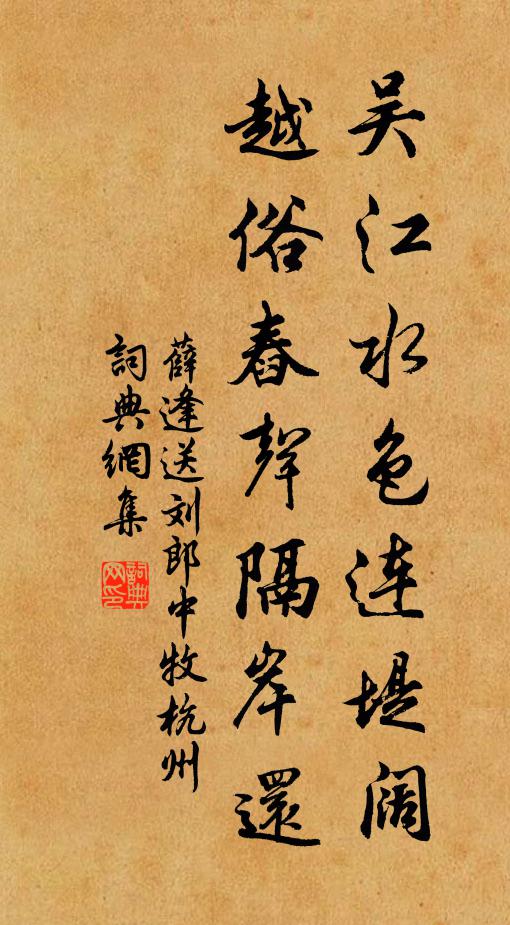 吴江水色连堤阔
越俗舂聲隔岸還
薛逢送刘郎中牧杭州
詞典網集
詞典网印